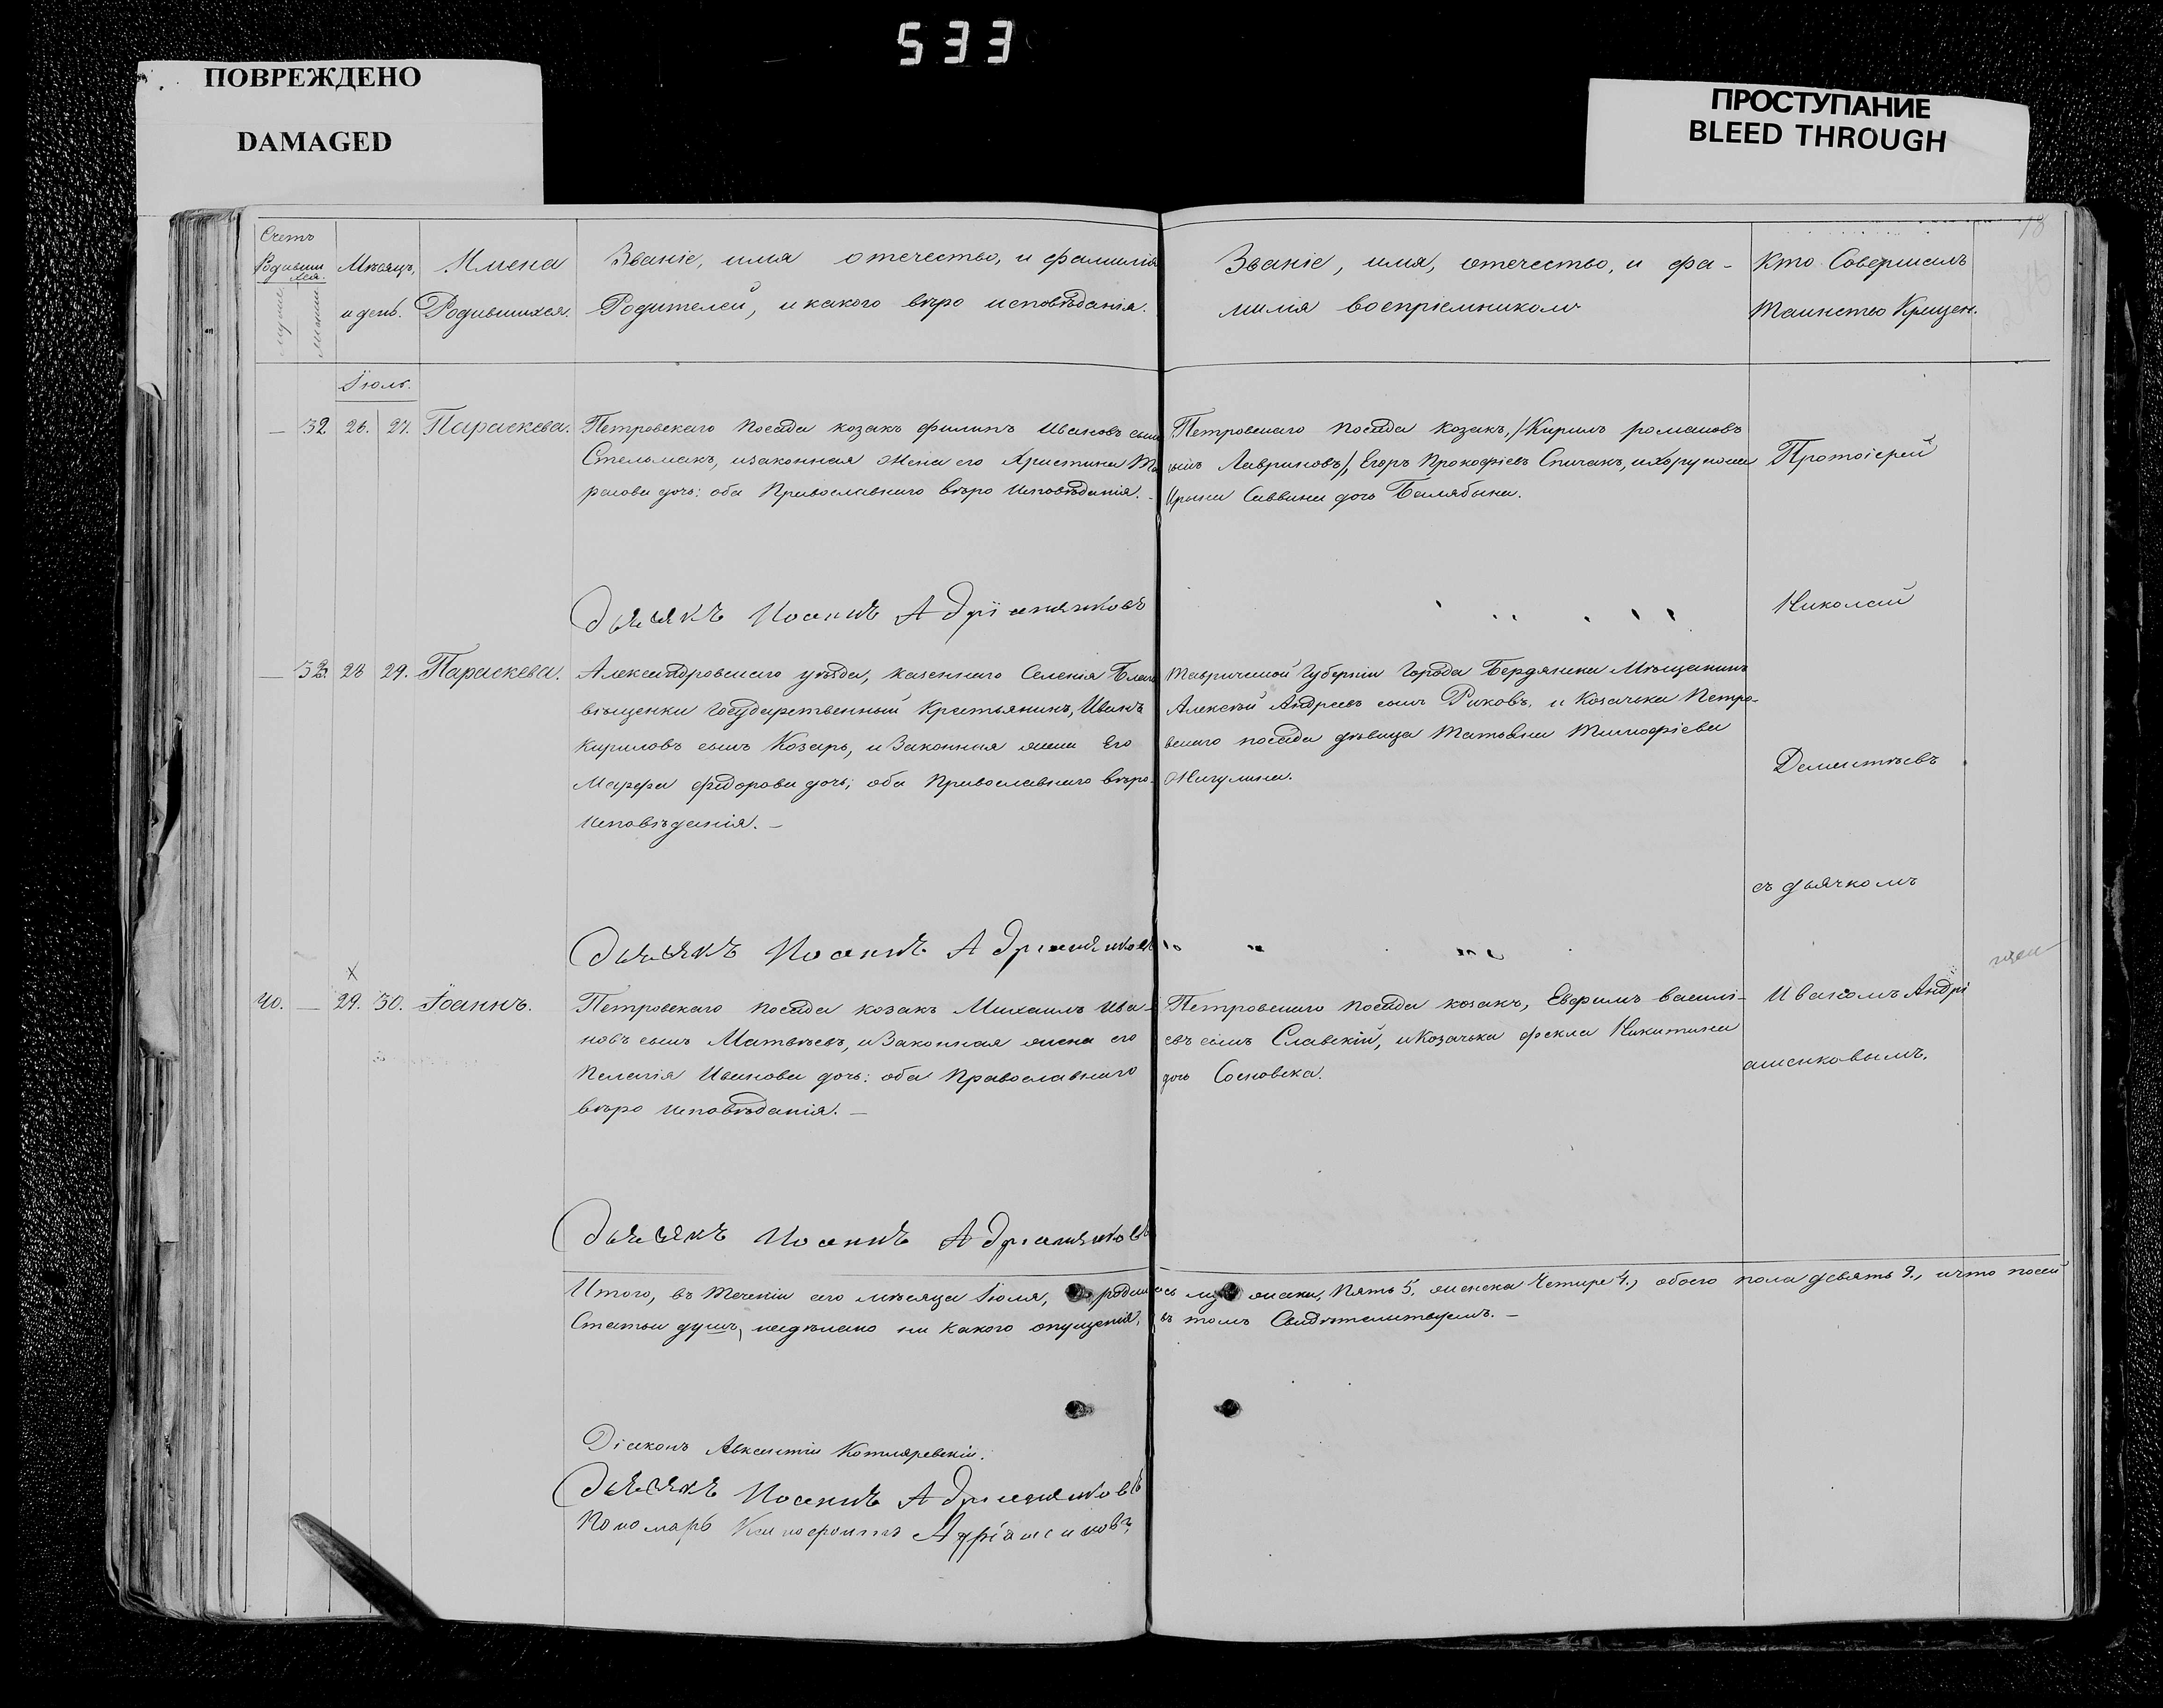 533
ПОВРЕЖДЕНО
DAMAGED
ПРОСТУПАНИЕ
BLEED THROUGH
18
Счетъ
Родивши
хся.
Мѣсяцъ,
и день.
Имена
Родившихся.
Званіе, имя отечество, и фамилія
Родителей, и какого вѣро исповѣданія.
Званіе, имя, отечество, и фа-
милія воспріемниковъ
Кто Совершалъ
Таинство Крещен.
Іюль.
— 32 26. 27. Параскева.
Петровскаго Посада козакъ филипъ Ивановъ сынъ
Стельмахъ, изаконная Жена его Христина
расова дочь: оба Православнаго вѣро Исповѣданія.
Петровскаго Посада Козакъ, /Кирилъ романовъ
сынъ Лавриковъ/, Егоръ Прокофіевъ Спичакъ, и
Ирина Саввина дочь Балябына.
Протоіерей
Дьячекъ Иоаннъ Адріаненковъ
Николай
— 33. 28 29. Параскева.
Александровскаго уѣзда, казеннаго Селенія Благо
вѣщенки Государственный Крестьянинъ, Иванъ
Кириловъ сынъ Козарь, и Законная жена Его
Марфа федорова дочь; оба Православнаго вѣро-
Исповѣданія. —
Таврической Губерніи Города Бердянска Мѣщанинъ
Алексѣй Андреевъ сынъ Рыковъ, и Козачька Петро-
вскаго посада дѣвица Татьяна Тимофіева
Жигулина.
Дементьевъ
съ дьячкомъ
Дьячекъ Иоаннъ Адріаненковъ
х
40. — 29. 30. Іоаннъ.
Петровскаго Посада козакъ Михаилъ Ива-
новъ сынъ Матвѣевъ, и Законная жена его
Пелагія Иванова дочь: оба Православнаго
вѣро исповѣданія. —
Петровскаго Посада козакъ, Евфимъ василі-
евъ сынъ Славскій, и Козачька фекла Никитина
дочь Сосновска.
Иваномъ Андрі
аненковымъ.
Дьячекъ Иоаннъ Адріаненковъ
Итого, въ теченіи сего мѣсяца Іюля, родилось муж жеска, Пять 5, женска Четыре 4., обоего пола девять 9., и что посей
Статьи душъ, недѣлано ни какого опущенія, въ томъ Свидѣтельствуемъ. —
Діаконъ Авксентій Котляревскій.
Дьячекъ Иоаннъ Адріаненковъ
Пономарь Ксенофонтъ Адріаненковъ